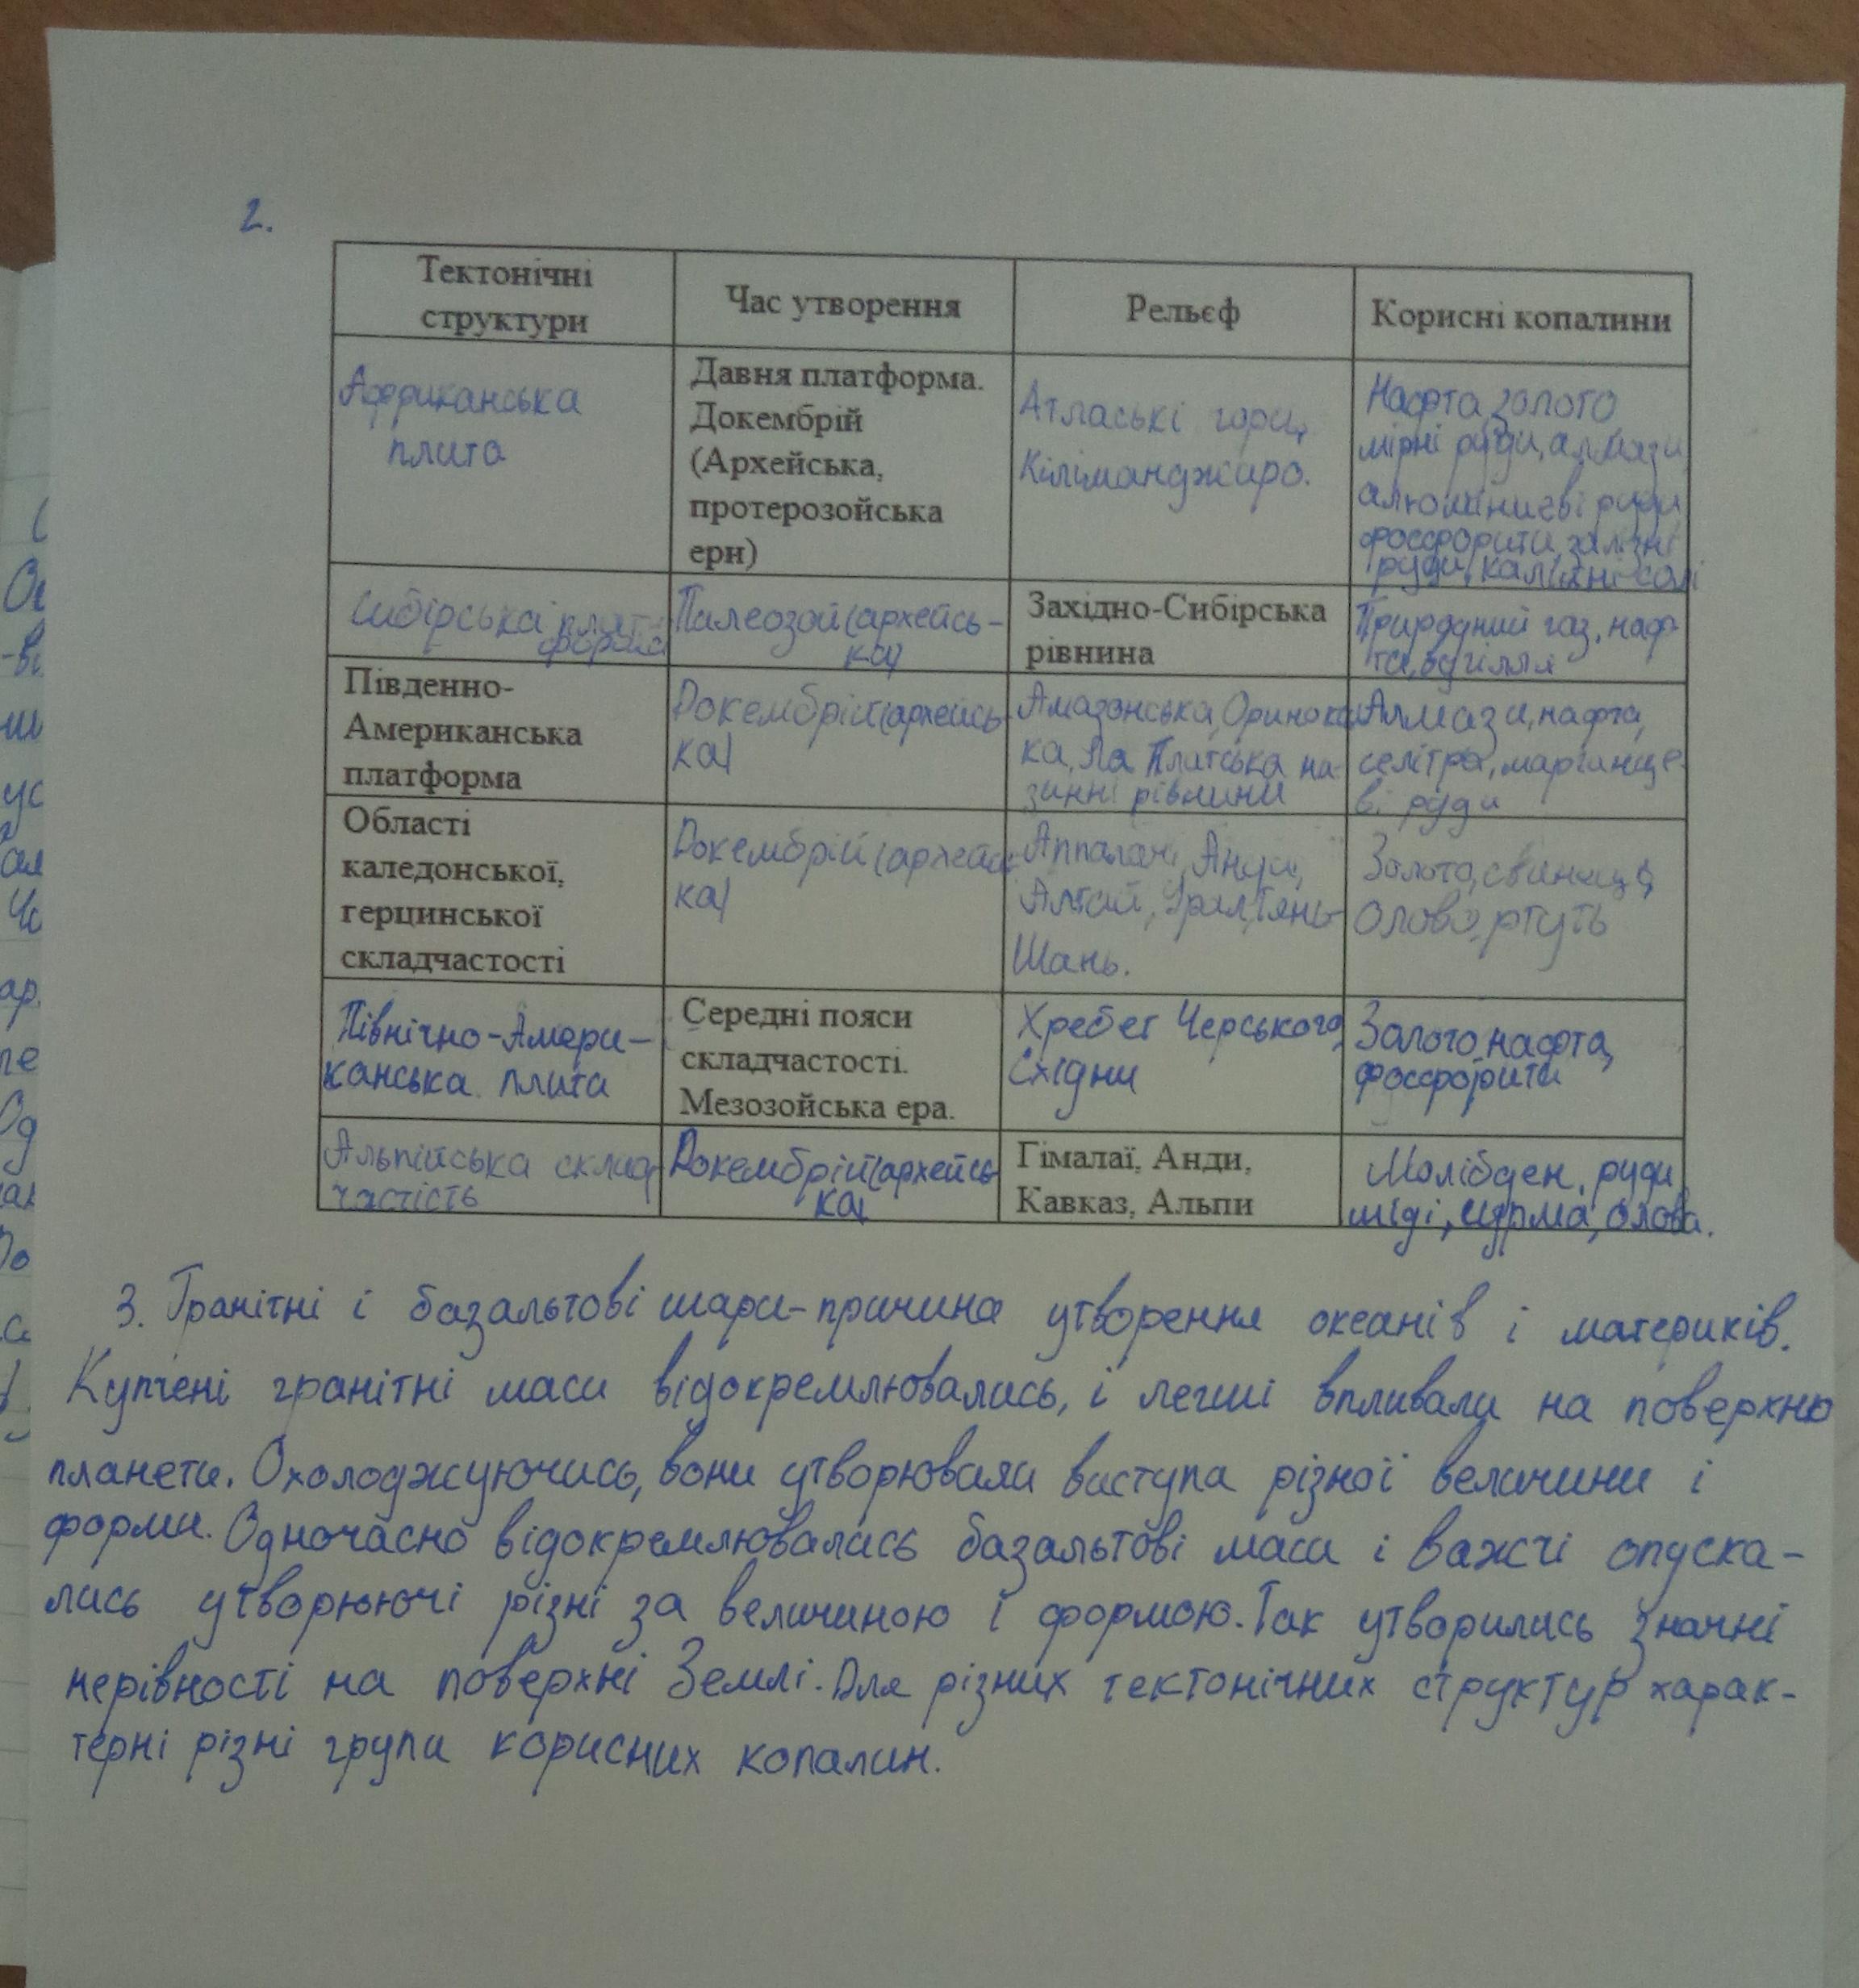 2.
Тектонічні
структури
Час утворення
Рельєф
Корисні копалини
Африканська
плита
Давня платформа.
Докембрій
(Архейська,
протерозойська
ери)
Атлаські гори,
Кіліманджаро.
Нафта, золото
мірні руди, алмази,
алюмінієві руди
фосфорити, залізні
руди, калійні солі
Сибірська плат-
форма
Палеозой (архейсь-
ка)
Західно-Сибірська
рівнина
Природний газ, наф-
та, вугілля
Південно-
Американська
платформа
Докембрій (архейсь-
ка)
Амазонська, Оринокс
ка, Ла Платська на-
зинні рівнини
Алмази, нафта,
селітра, марганце-
ві руди
Області
каледонської,
герцинської
складчастості
Докембрій (архейсь
ка)
Аппалачі, Анди,
Алтай, Урал, Тянь-
Шань.
Золото, свинець,
олово, ртуть
Північно-Амери-
канська плита
Середні пояси
складчастості.
Мезозойська ера.
Хребет Черського,
Східни
Золото, нафта,
фосфорити
Альпійська склад
частість
Докембрій (архейсь
ка)
Гімалаї, Анди,
Кавказ, Альпи
Молібден, руди
міді, сурма, олова.
3. Гранітні і базальтові шари - причина утворення океанів і материків.
Купчені гранітні маси відокремлювались, і легші впливали на поверхню
планети. Охолоджуючись, вони утворювали виступи різної величини і
форми. Одночасно відокремлювались базальтові маси і важчі опуска-
лись утворюючі різні за величиною і формою. Так утворились значні
нерівності на поверхні Землі. Для різних тектонічних структур харак-
терні різні групи корисних копалин.